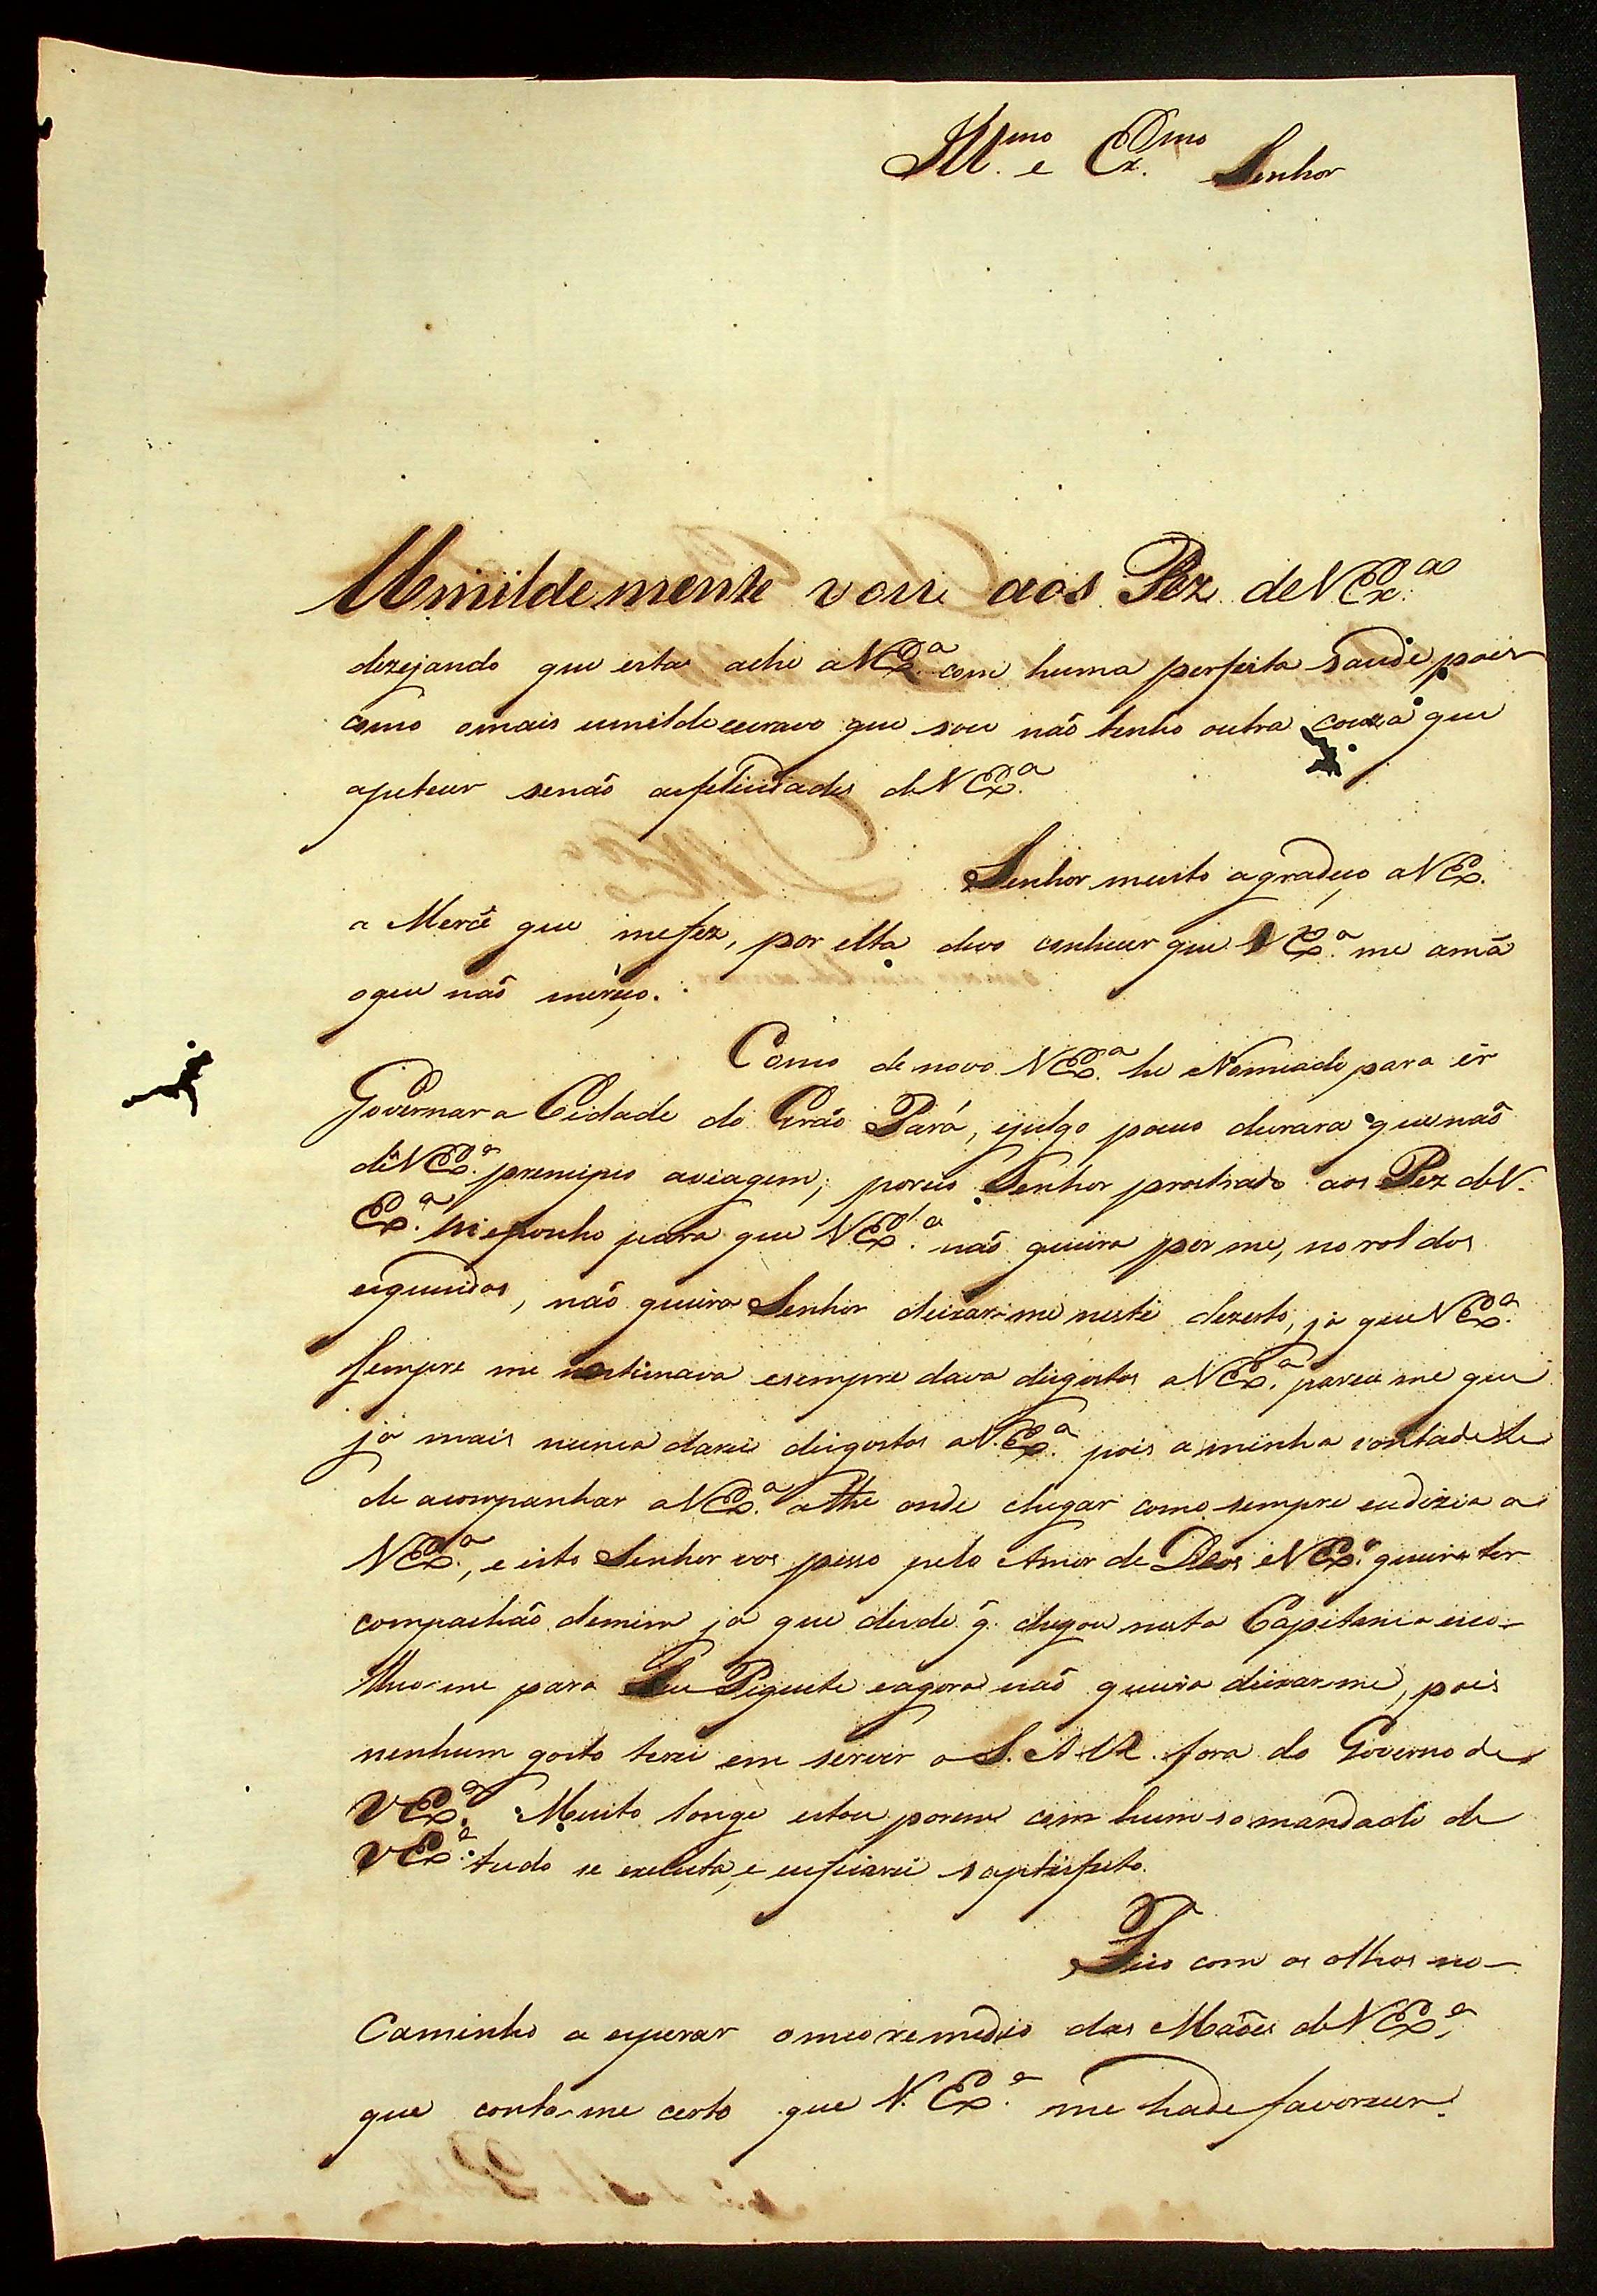 Ill.mo e Ex.mo Senhor
Umildemente vou aos Pez de V Ex.a
dezejando que esta ache a V Ex.a com huma perfeita saude pois
como o mais umilde escravo que sou não tenho outra couza que
apetecer senão as felicidades de V Ex.a
Senhor muito agradeço a V Ex.
a Mercê que me fez, por ella devo conhecer que V Ex.a me amã
o que não mereço.
Como de novo V Ex.a he Nomeado para ir
Governar a Cidade do Grão Pará, e julgo pouco durara que não
dê V Ex.a prencipio a viagem; por isso Senhor prostrado aos Pez de V.
Ex.a me ponho para que V Ex.a não queira por me, no rol dos
esquecidos, não queira Senhor deixar-me neste dezerto, ja que V Ex.a
sempre me e sempre dava disgostos a V Ex.a, parece me que
já mais nunca darei disgostos a V. Ex.a pois a minha vontade he
de acompanhar a V Ex.a athe onde chegar como sempre eu dizia a
V Ex.a, e isto Senhor vos pesso pelo Amor de Deos e V Ex.a queira ter
compachão de mim já que desde q̃. chegou nesta Capitania esco-
lheo-me para Seu Piquete e agora não queira deixar-me, pois
nenhum gosto terei em servir a S. A. R. fora do Governo de
V Ex.a Muito longe estou porem com hum so mandado de
V Ex.a tudo se executa, e eu ficarei saptisfeito.
Fico com os olhos no
Caminho a esperar o meo remedio das Mãoes de V Ex.a,
que conta-me certo que V. Ex.a me hade favorecer.